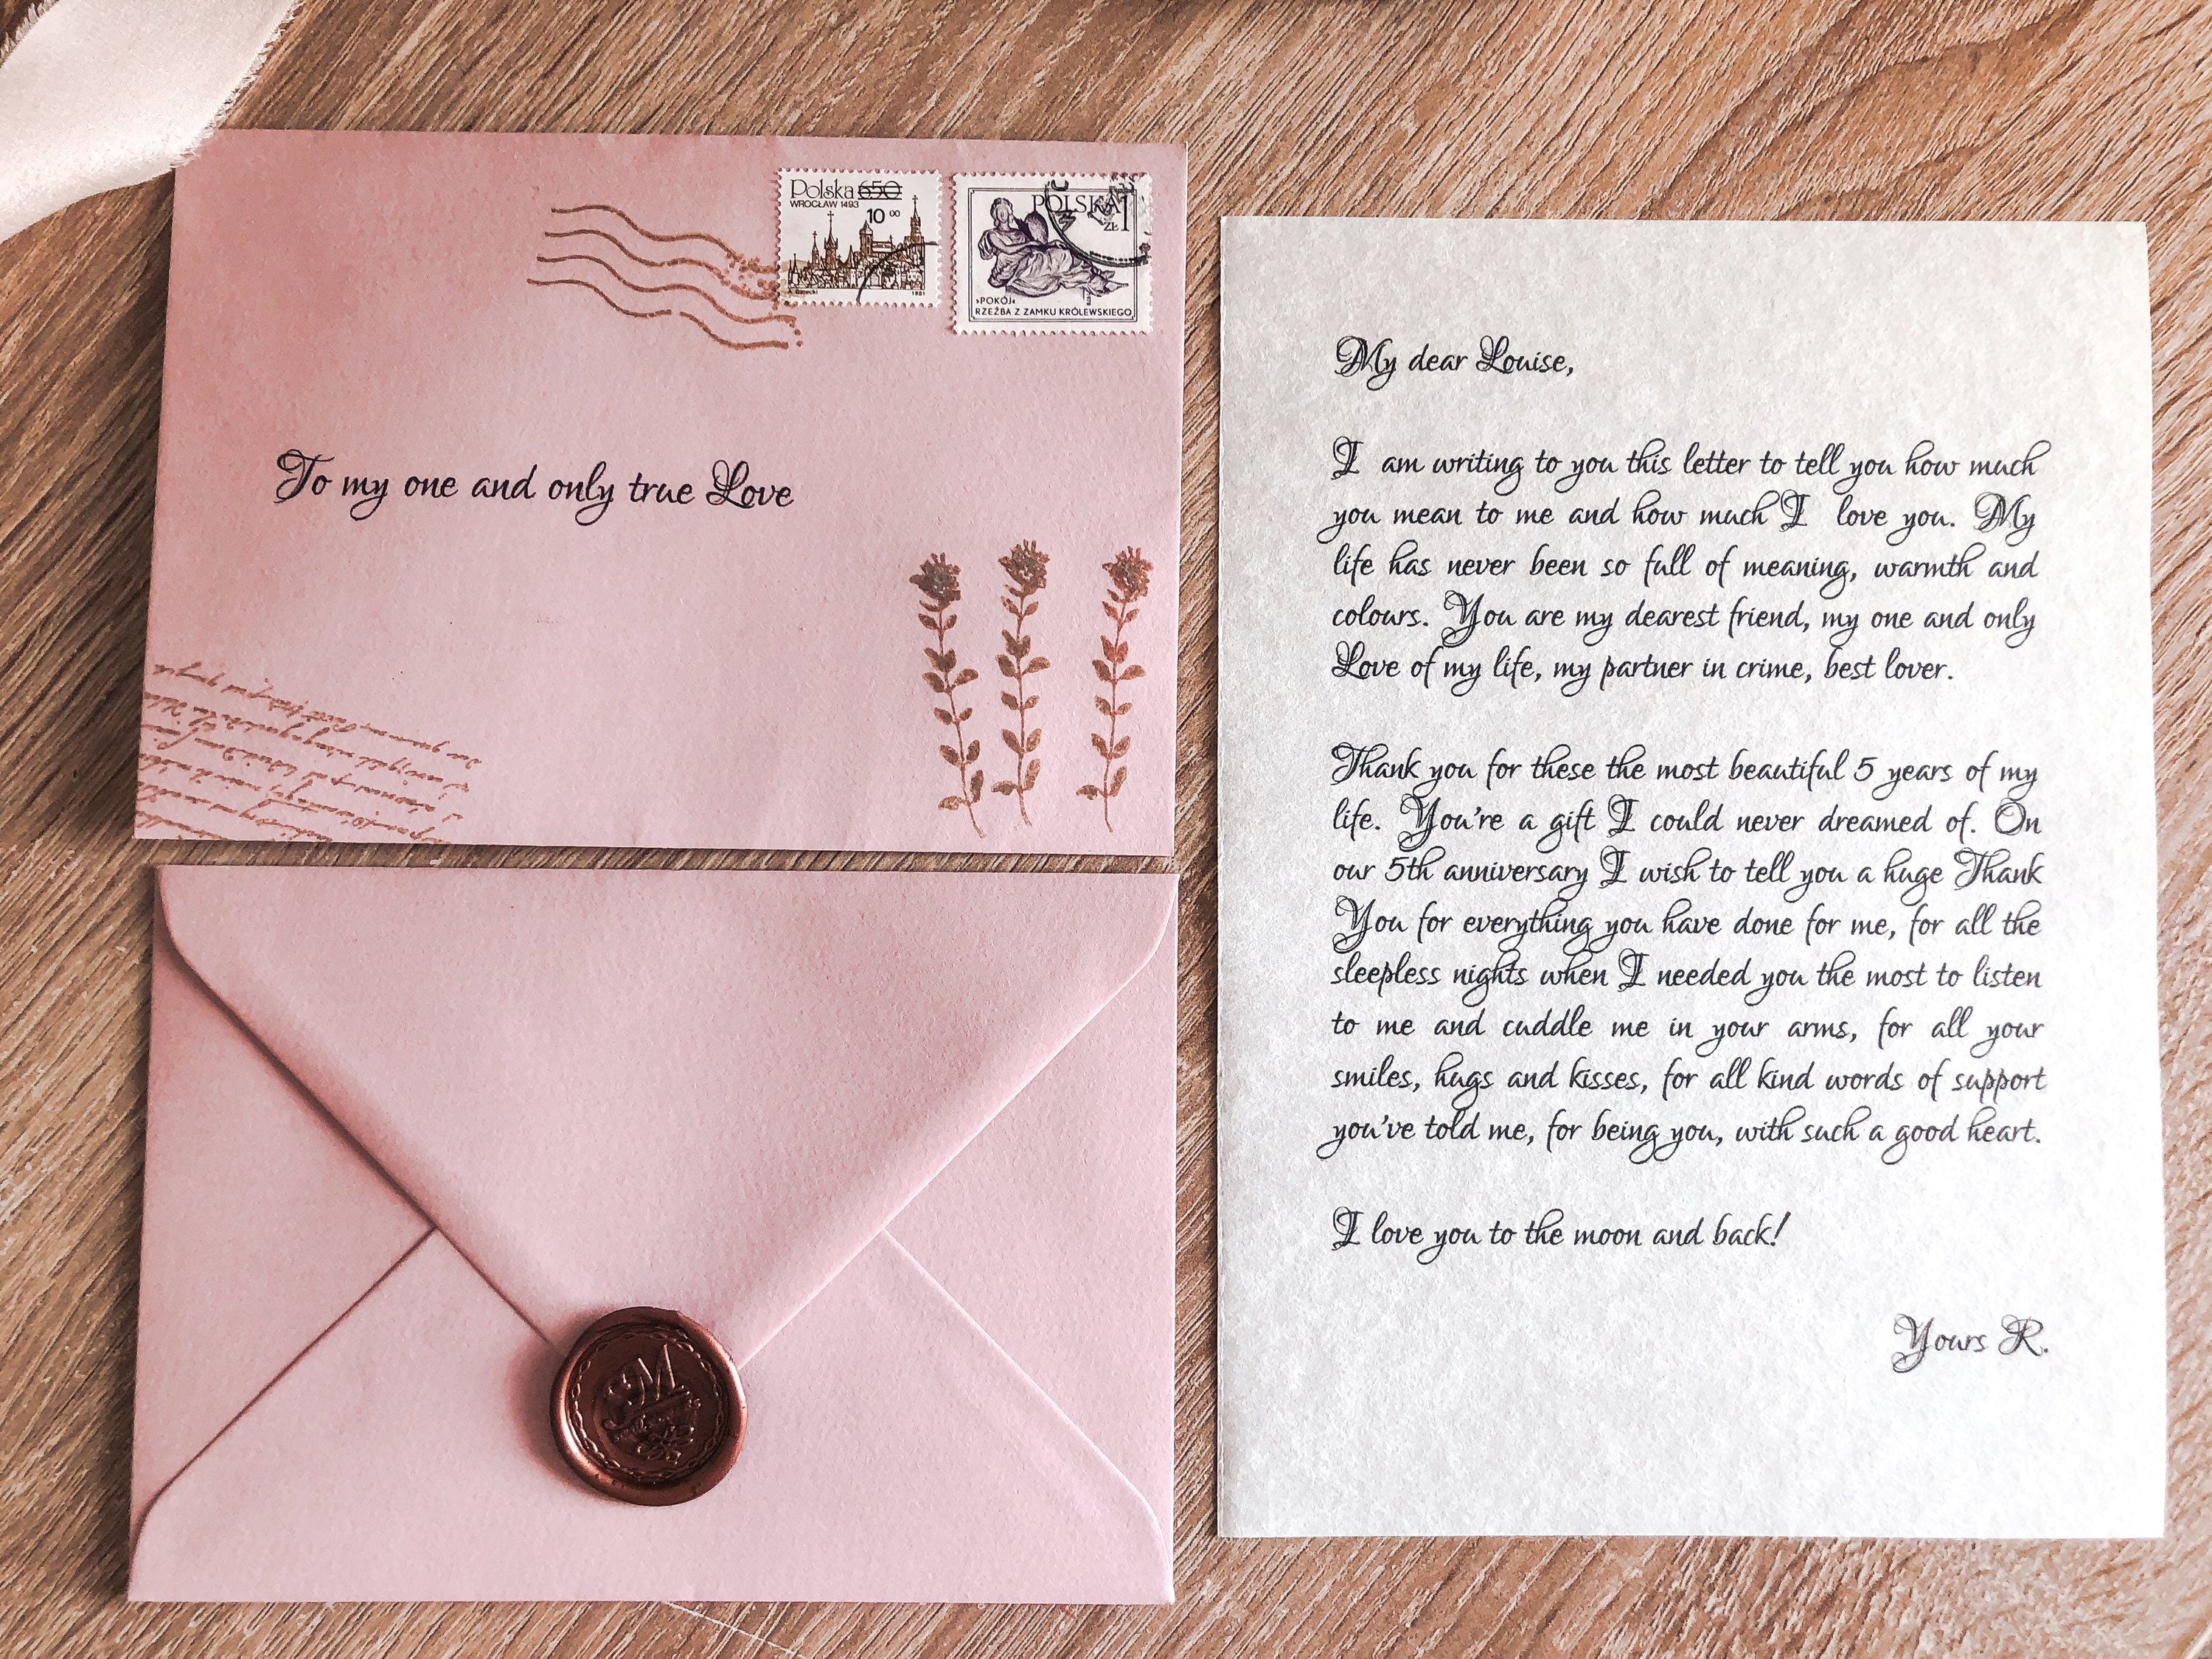 Polska 650
WROCŁAW 1493
10 00
1981
POLSKA
ZŁ 1
›POKÓJ‹
RZEŹBA Z ZAMKU KRÓLEWSKIEGO
To my one and only true Love
M
My dear Louise,
I am writing to you this letter to tell you how much
you mean to me and how much I love you. My
life has never been so full of meaning, warmth and
colours. You are my dearest friend, my one and only
Love of my life, my partner in crime, best lover.
Thank you for these the most beautiful 5 years of my
life. You're a gift I could never dreamed of. On
our 5th anniversary I wish to tell you a huge Thank
You for everything you have done for me, for all the
sleepless nights when I needed you the most to listen
to me and cuddle me in your arms, for all your
smiles, hugs and kisses, for all kind words of support
you've told me, for being you, with such a good heart.
I love you to the moon and back!
Yours R.